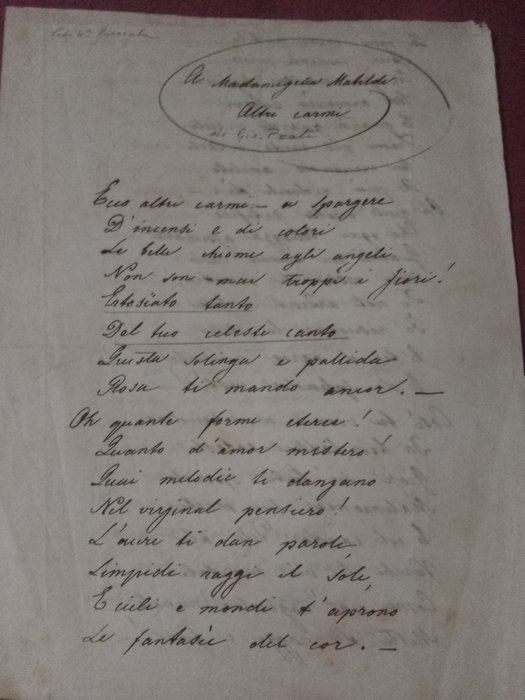 A Madamigella Matilde
Altri carmi
di Gio. Prati
Ecco altri carmi – a spargere
D'incensi e di colori
Le belle chiome agli angeli
Non son mai troppi i fiori!
Estasïato tanto
Del tuo celeste canto
Questa solinga e pallida
Rosa ti mando ancor. —
Oh quante forme eteree!
Quanto d'amor mistero!
Quai melodie ti danzano
Nel virginal pensiero!
L'aure ti dan parole,
Limpidi raggi il sole,
E cieli e mondi t'aprono
Le fantasie del cor. —